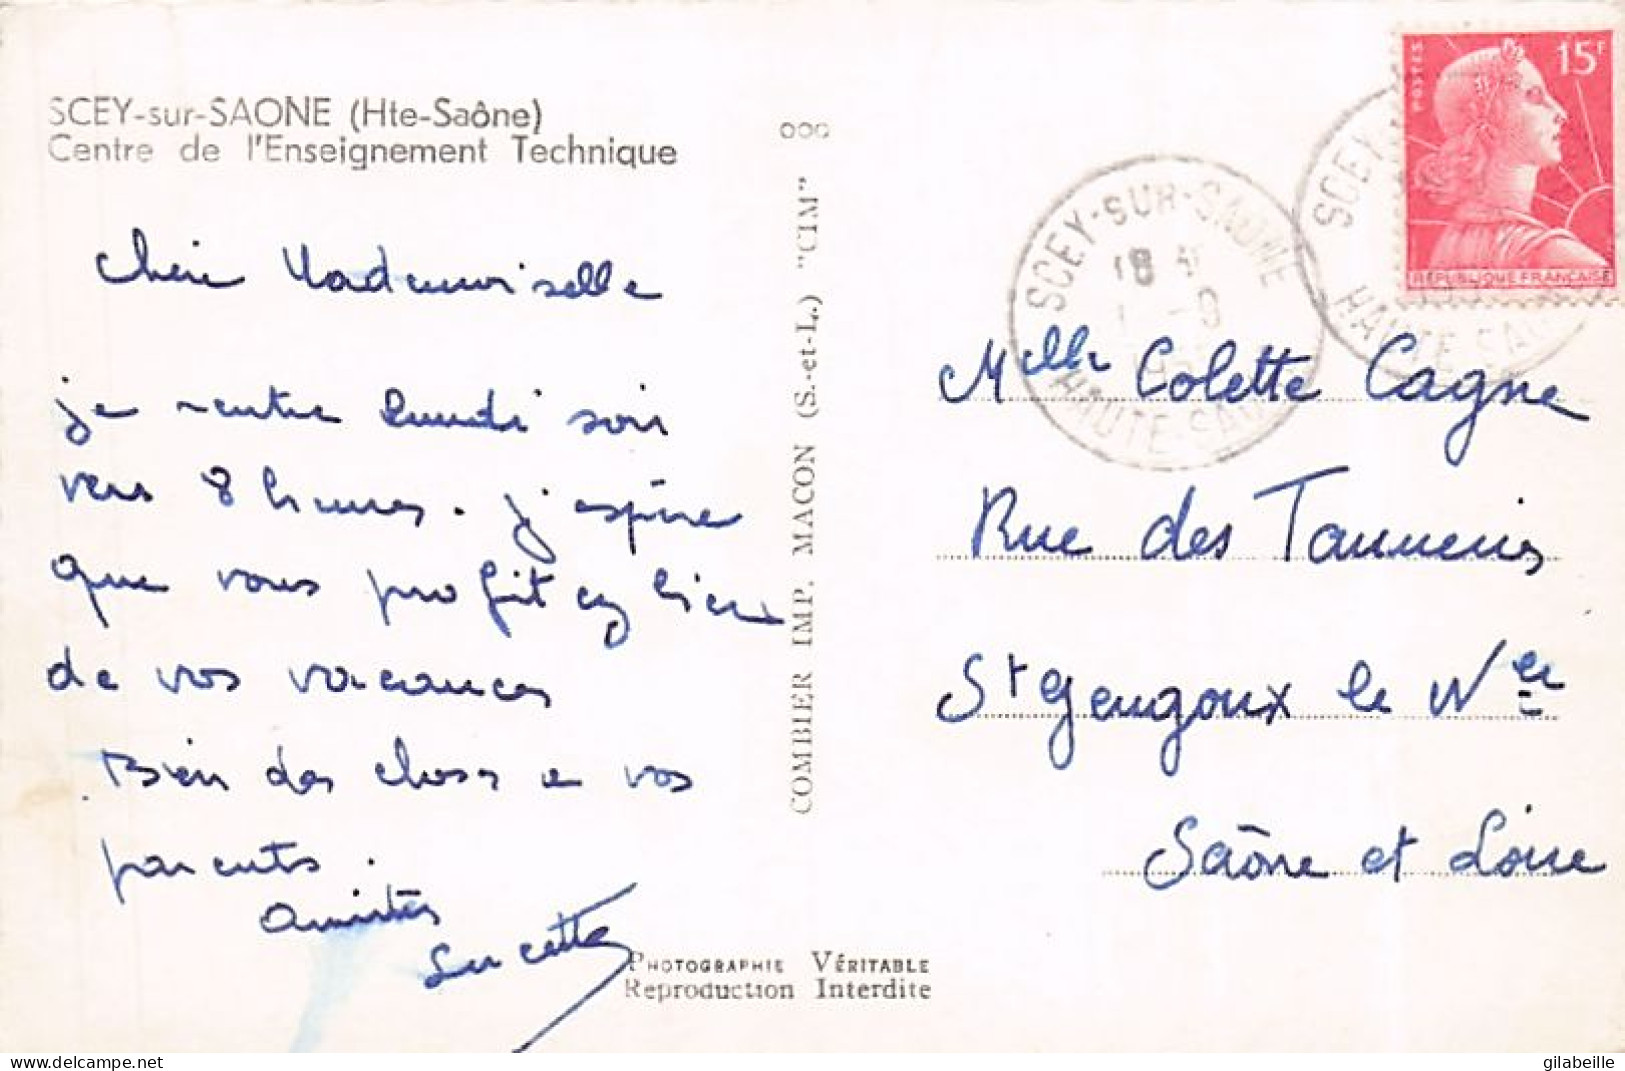 SCEY-sur-SAONE (Hte-Saône)
Centre de l'Enseignement Technique
Chère Mademoiselle
je rentre Lundi soir
vers 8 heures. J'espère
que vous profitez bien
de vos vacances
Bien des choses a vos
parents.
Amitiés
Lucette
ooo
COMBIER IMP. MACON (S.-et-L.) "CIM"
PHOTOGRAPHIE VÉRITABLE
Reproduction Interdite
SCEY-SUR-SAONE
18
HAUTE-SAONE
SCEY
HAUTE-SAONE
POSTES
15F
REPUBLIQUE FRANCAISE
Melle Colette Cagne
Rue des Tanneries
St Gengoux le Nal
Saône et Loire
gilabeille